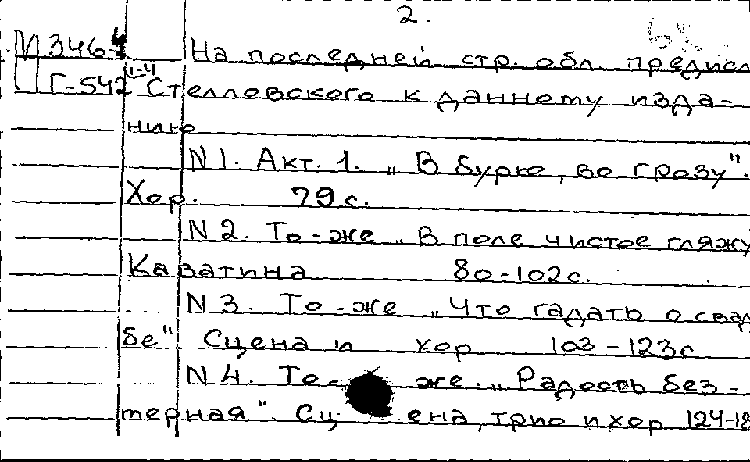 2.
И 346-4 На последней стр. обл. предисл
Г-542 1-4 Стелловского к данному изда-
нию
N 1. Акт. 1. „В бурю, во грозу".
Хор. 79 с.
N 2. То-же „В поле чистое гляжу
Каватина 80-102 с.
N 3. То-же „Что гадать о свад
бе" Сцена и хор 103-123 с
N 4. То-же. „Радость без-
мерная". Сцена, трио и хор 124-18